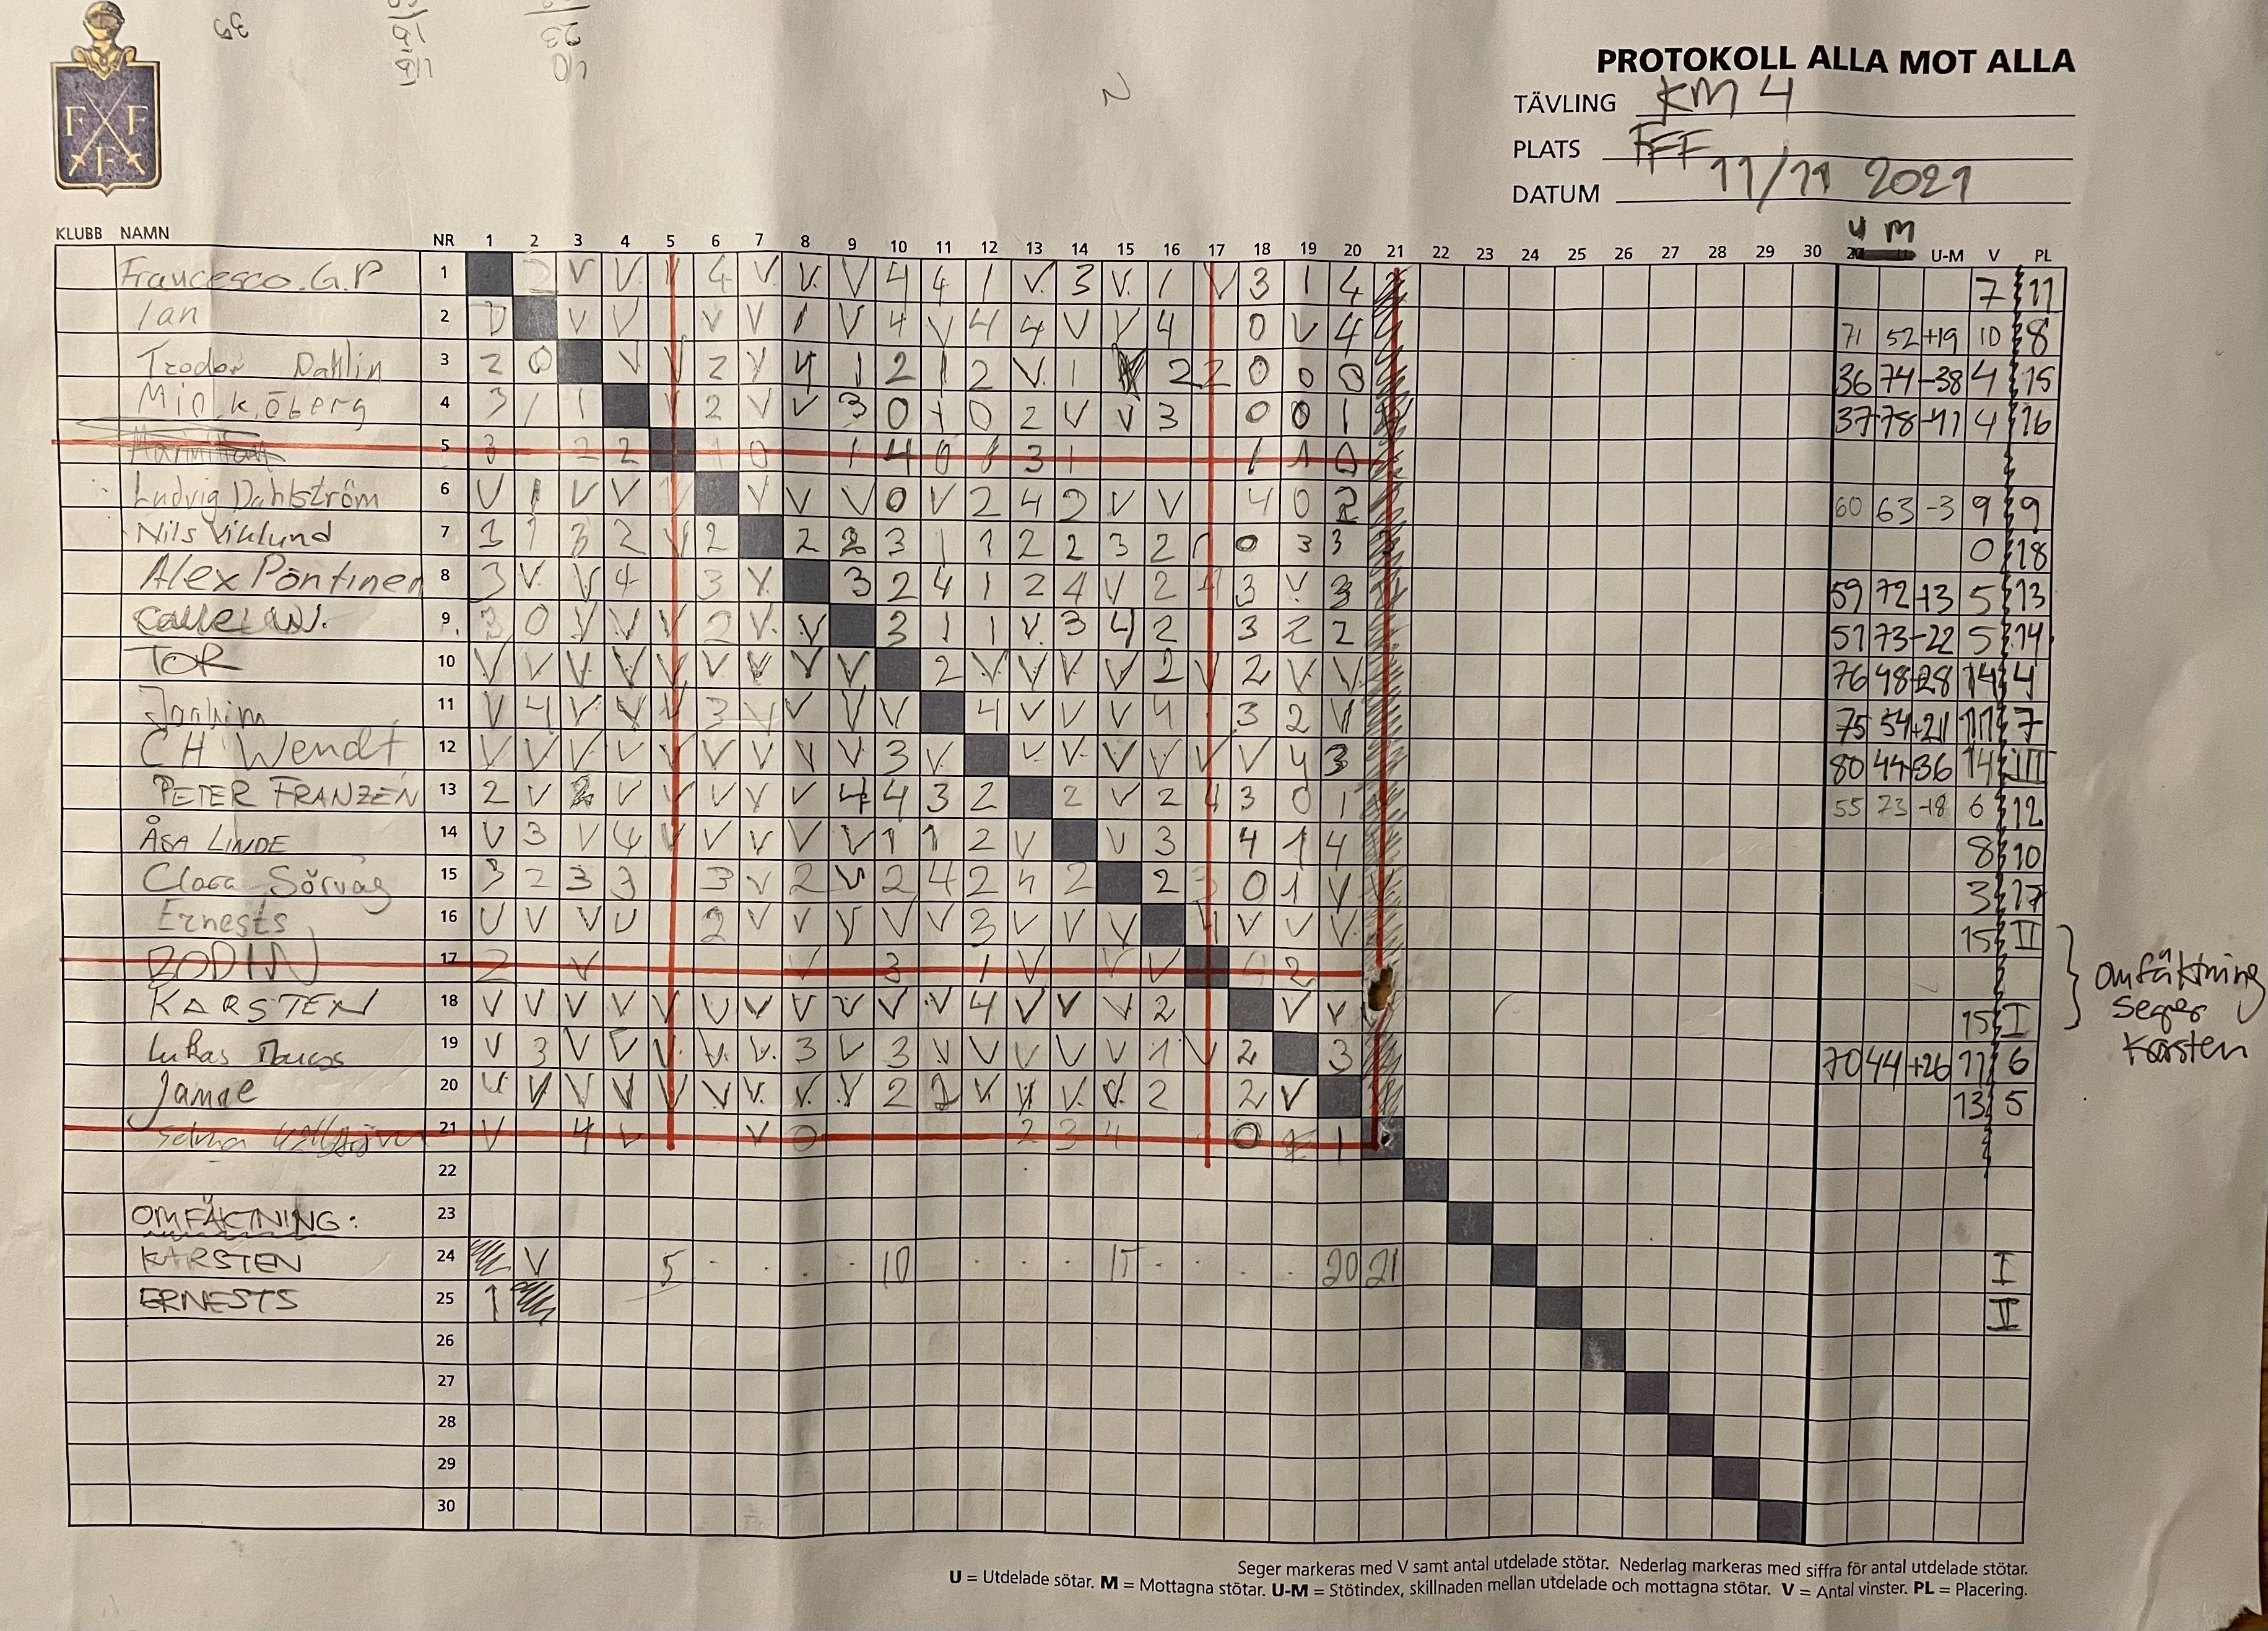 35
N
F F
F
PROTOKOLL ALLA MOT ALLA
TÄVLING KM 4
PLATS FFF
DATUM 11/11 2021
U M
KLUBB NAMN NR 1 2 3 4 5 6 7 8 9 10 11 12 13 14 15 16 17 18 19 20 21 22 23 24 25 26 27 28 29 30 U-M V PL
Francesco.G.P 1 V V V 4 V. V. V 4 4 1 V. 3 V. 1 V 3 1 4 7 11
Ian 2 V V V V V 1 V 4 V 4 4 V V 4 0 V 4 71 52 +19 10 8
Dahlin 3 2 0 V V 2 V 4 1 2 1 2 V. 1 2 2 0 0 0 36 74 -38 4 15
4 3 1 1 V 2 V V 3 0 1 0 2 V V 3 0 0 1 37 78 -41 4 16
5 3 2 2 1 0 1 4 0 3 1 1 1 0
Ludvig Dahlström 6 V 1 V V V V V 0 V 2 4 2 V V 4 0 2 60 63 -3 9 9
Nils Viklund 7 3 1 3 2 V 2 2 2 3 1 1 2 2 3 2 1 0 3 3 0 18
Alex Pöntinen 8 3 V. V 4 3 V. 3 2 4 1 2 4 V 2 4 3 V 3 59 72 -13 5 13
Calle W. 9 3 0 V V V 2 V. V 3 1 1 V. 3 4 2 3 2 2 51 73 -22 5 14
TOR 10 V V V V V V V V V 2 V V V V 2 V 2 V V 76 48 +28 14 4
Joakim 11 V 4 V V V 3 V V V V 4 V V V 4 3 2 V 75 54 +21 11 7
CH Wendt 12 V V V V V V V V V 3 V. V V. V V V V 4 3 80 44 +36 14 III
PETER FRANZÉN 13 2 V V V V V V 4 4 3 2 2 V 2 4 3 0 1 55 73 -18 6 12
ÅSA LINDE 14 V 3 V 4 V V V V V 1 1 2 V V 3 4 1 4 8 10
Clara Sörvåg 15 3 2 3 3 3 V 2 V 2 4 2 4 2 2 3 0 1 V 3 17
Ernests 16 V V V V 2 V V V V V 3 V V V 4 V V V 15 II
BODIN 17 2 V V 3 1 V V V 4 2
KARSTEN 18 V V V V V V V V V V V 4 V V V 2 V V 15 I
Lukas 19 V 3 V V V V V. 3 V 3 V V V V V 1 V 2 3 70 44 +26 11 6
Jamie 20 V V V V V V V. V. V 2 2 V. V V. V. 2 2 V 13 5
Selma 21 V 4 V V 0 2 3 4 0 1
22
OMFÄKTNING: 23
KARSTEN 24 V 5 . . . . 10 . . . . 15 . . . . 20 21 I
ERNESTS 25 1 II
26
27
28
29
30
omfäktning
seger
Karsten
Seger markeras med V samt antal utdelade stötar. Nederlag markeras med siffra för antal utdelade stötar.
U = Utdelade sötar. M = Mottagna stötar. U-M = Stötindex, skillnaden mellan utdelade och mottagna stötar. V = Antal vinster. PL = Placering.